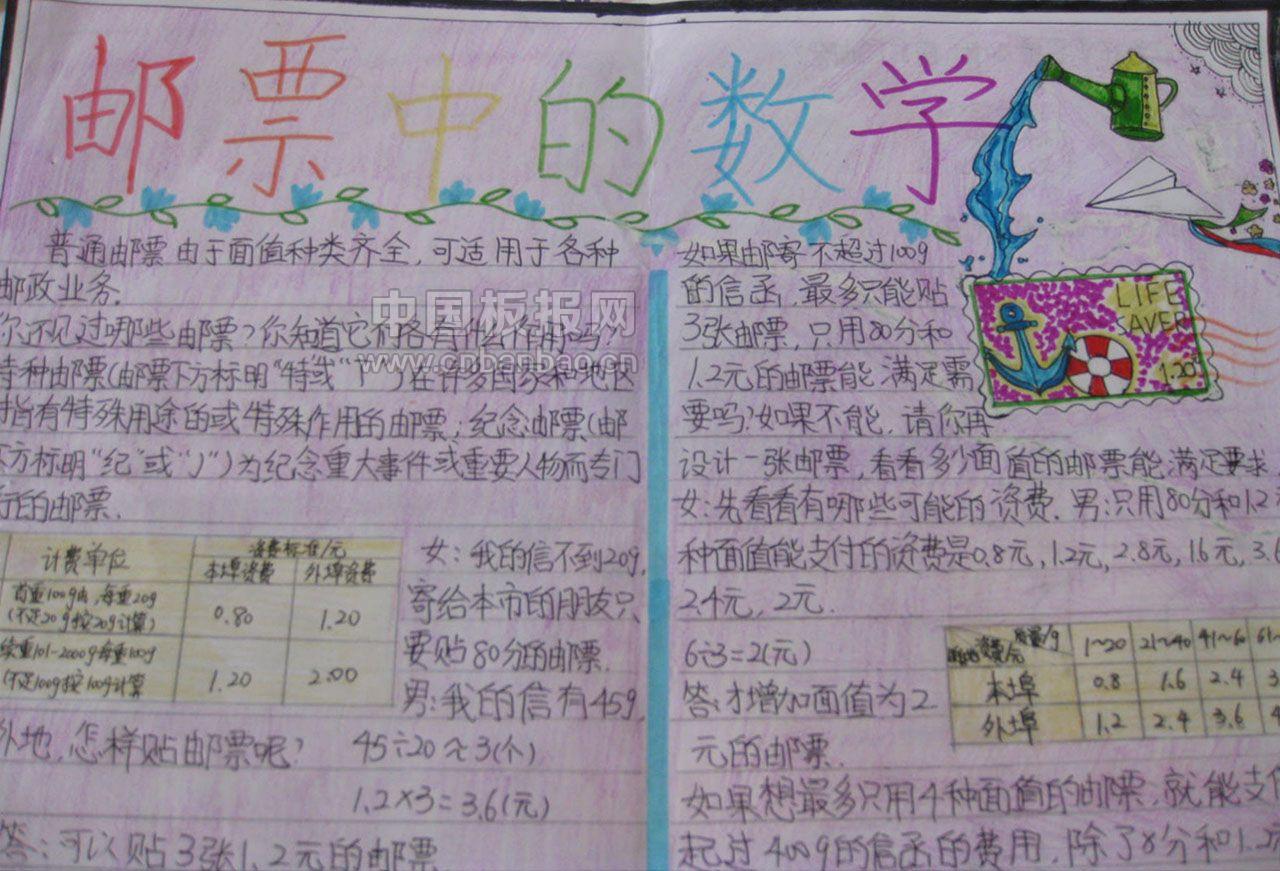 邮票中的数学
普通邮票由于面值种类齐全,可适用于各种
邮政业务.
你还见过哪些邮票?你知道它们各有什么作用吗?
特种邮票(邮票下方标明“特或“T”)在许多国家和地区
指有特殊用途的或特殊作用的邮票;纪念邮票(邮
下方标明“纪”或“J”)为纪念重大事件或重要人物而专门
行的邮票.
计费单位 资费标准/元
本埠资费 外埠资费
首重100g内,每重20g
(不足20g按20g计算) 0.80 1.20
续重101~2000g每重100g
(不足100g按100g计算 1.20 2.00
女:我的信不到20g,
寄给本市的朋友只
要贴80分的邮票.
男:我的信有45g,
外地,怎样贴邮票呢? 45÷20≈3(个)
1.2×3=3.6(元)
答:可以贴3张1.2元的邮票
如果邮寄不超过100g
的信函,最多只能贴
3张邮票,只用80分和
1.2元的邮票能满足需
要吗?如果不能,请你再
设计一张邮票,看看多少面值的邮票能满足要求
女:先看看有哪些可能的资费.男:只用80分和1.2
种面值能支付的资费是0.8元,1.2元,2.8元,1.6元,3.6
2.4元,2元.
6÷3=2(元)
答:才增加面值为2
元的邮票.
质量/g 1~20 21~40 41~60 61~
资费/元
本埠 0.8 1.6 2.4 3
外埠 1.2 2.4 3.6 4
如果想最多只用4种面值的邮票,就能支付
起过400g的信函的费用,除了8分和1.2元
LIFE
SAVER
1.20
中国板报网
www.cnbanbao.cn